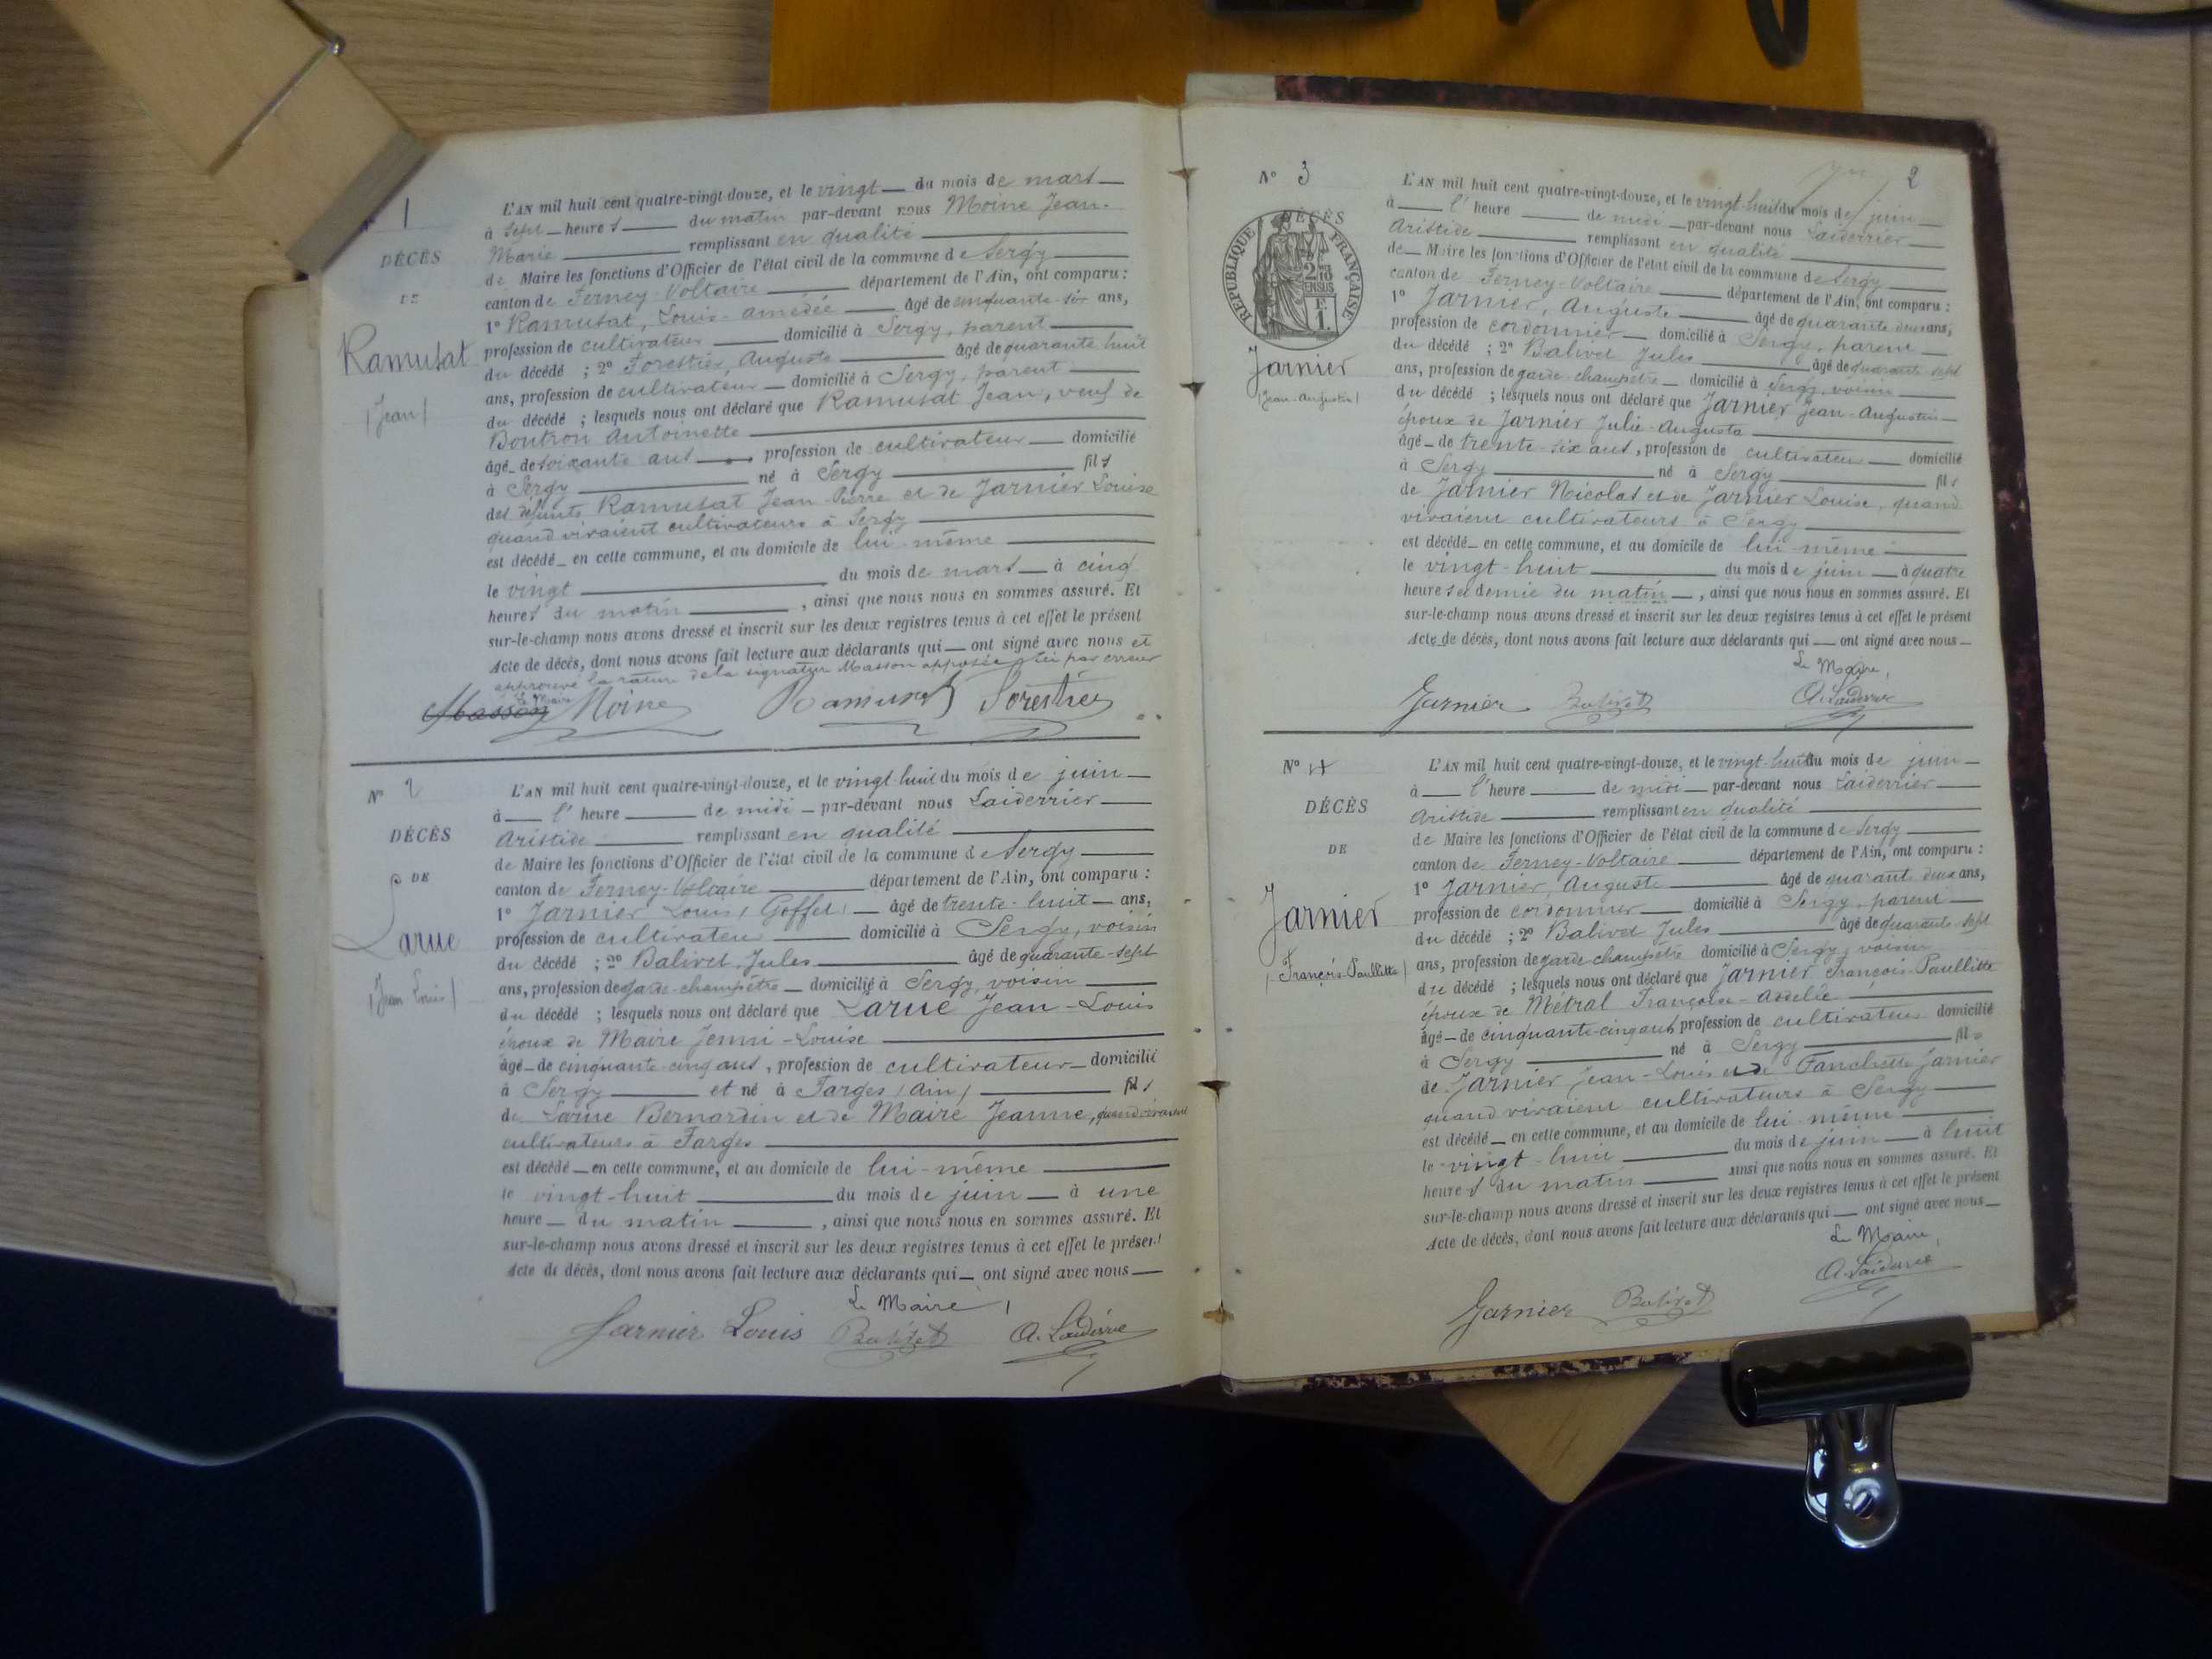 N° 1
DÉCÈS
DE
Ramusat
(Jean)
L'AN mil huit cent quatre-vingt-douze, et le vingt du mois de mars
à sept heures du matin par-devant nous Moine Jean-
Marie remplissant en qualité
de Maire les fonctions d'Officier de l'état civil de la commune de Sergy
canton de Ferney-Voltaire département de l'Ain, ont comparu :
1° Ramusat, Louis-amédée âgé de cinquante-six ans,
profession de cultivateur domicilié à Sergy, parent
du décédé ; 2° Forestier, Auguste âgé de quarante huit
ans, profession de cultivateur domicilié à Sergy, parent
du décédé ; lesquels nous ont déclaré que Ramusat Jean, veuf de
Boutron Antoinette
âgé de soixante ans profession de cultivateur domicilié
à Sergy né à Sergy fils
des défunts Ramusat Jean-Pierre et de Jarnier Louise
quand viraient cultivateurs à Sergy
est décédé en cette commune, et au domicile de lui-même
le vingt du mois de mars à cinq
heures du matin , ainsi que nous nous en sommes assuré. Et
sur-le-champ nous avons dressé et inscrit sur les deux registres tenus à cet effet le présent
Acte de décès, dont nous avons fait lecture aux déclarants qui ont signé avec nous et
approuvé la rature de la signature Masson apposée ici par erreur
Le Maire
Masson Moine Ramusat Forestier
N° 2
DÉCÈS
DE
Larue
(Jean Louis)
L'AN mil huit cent quatre-vingt-douze, et le vingt-huit du mois de juin
à l' heure de midi par-devant nous Laiderrier
Aristide remplissant en qualité
de Maire les fonctions d'Officier de l'état civil de la commune de Sergy
canton de Ferney-Voltaire département de l'Ain, ont comparu :
1° Jarnier Louis (Goffet) âgé de trente-huit ans,
profession de cultivateur domicilié à Sergy, voisin
du décédé ; 2° Balivet, Jules âgé de quarante-sept
ans, profession de garde-champêtre domicilié à Sergy, voisin
du décédé ; lesquels nous ont déclaré que Larue Jean-Louis
époux de Maire Jenni-Louise
âgé de cinquante-cinq ans, profession de cultivateur domicilié
à Sergy et né à Farges (Ain) fils
de Larue Bernardin et de Maire Jeanne, quand viraient
cultivateurs à Farges
est décédé en cette commune, et au domicile de lui-même
le vingt-huit du mois de juin à une
heure du matin , ainsi que nous nous en sommes assuré. Et
sur-le-champ nous avons dressé et inscrit sur les deux registres tenus à cet effet le présent
Acte de décès, dont nous avons fait lecture aux déclarants qui ont signé avec nous
Le Maire,
Jarnier Louis Balivet A. Laiderrier
2
N° 3
DÉCÈS
RÉPUBLIQUE FRANÇAISE
Jarnier
(Jean-Augustin)
L'AN mil huit cent quatre-vingt-douze, et le vingt-huit du mois de juin
à l' heure de midi par-devant nous Laiderrier
Aristide remplissant en qualité
de Maire les fonctions d'Officier de l'état civil de la commune de Sergy
canton de Ferney-Voltaire département de l'Ain, ont comparu :
1° Jarnier, Auguste âgé de quarante-deux ans,
profession de cordonnier domicilié à Sergy, parent
du décédé ; 2° Balivet Jules âgé de quarante-sept
ans, profession de garde-champêtre domicilié à Sergy, voisin
du décédé ; lesquels nous ont déclaré que Jarnier Jean-Augustin
époux de Jarnier Julie-Augusta
âgé de trente-six ans, profession de cultivateur domicilié
à Sergy né à Sergy fils
de Jarnier Nicolas et de Jarnier Louise, quand
viraient cultivateurs à Sergy
est décédé en cette commune, et au domicile de lui-même
le vingt-huit du mois de juin à quatre
heures et demie du matin , ainsi que nous nous en sommes assuré. Et
sur-le-champ nous avons dressé et inscrit sur les deux registres tenus à cet effet le présent
Acte de décès, dont nous avons fait lecture aux déclarants qui ont signé avec nous
Le Maire,
Jarnier Balivet A. Laiderrier
N° 4
DÉCÈS
DE
Jarnier
(François-Paullitte)
L'AN mil huit cent quatre-vingt-douze, et le vingt-huit du mois de juin
à l' heure de midi par-devant nous Laiderrier
Aristide remplissant en qualité
de Maire les fonctions d'Officier de l'état civil de la commune de Sergy
canton de Ferney-Voltaire département de l'Ain, ont comparu :
1° Jarnier, Auguste âgé de quarante deux ans,
profession de cordonnier domicilié à Sergy, parent
du décédé ; 2° Balivet Jules âgé de quarante-sept
ans, profession de garde champêtre domicilié à Sergy, voisin
du décédé ; lesquels nous ont déclaré que Jarnier François-Paullitte
époux de Métral Françoise-Addelie
âgé de cinquante-cinq ans profession de cultivateur domicilié
à Sergy né à Sergy fils
de Jarnier Jean-Louis et de Fanchette Jarnier
quand viraient cultivateurs à Sergy
est décédé en cette commune, et au domicile de lui même
le vingt-huit du mois de juin à huit
heures du matin ainsi que nous nous en sommes assuré. Et
sur-le-champ nous avons dressé et inscrit sur les deux registres tenus à cet effet le présent
Acte de décès, dont nous avons fait lecture aux déclarants qui ont signé avec nous
Le Maire,
Jarnier Balivet A. Laiderrier